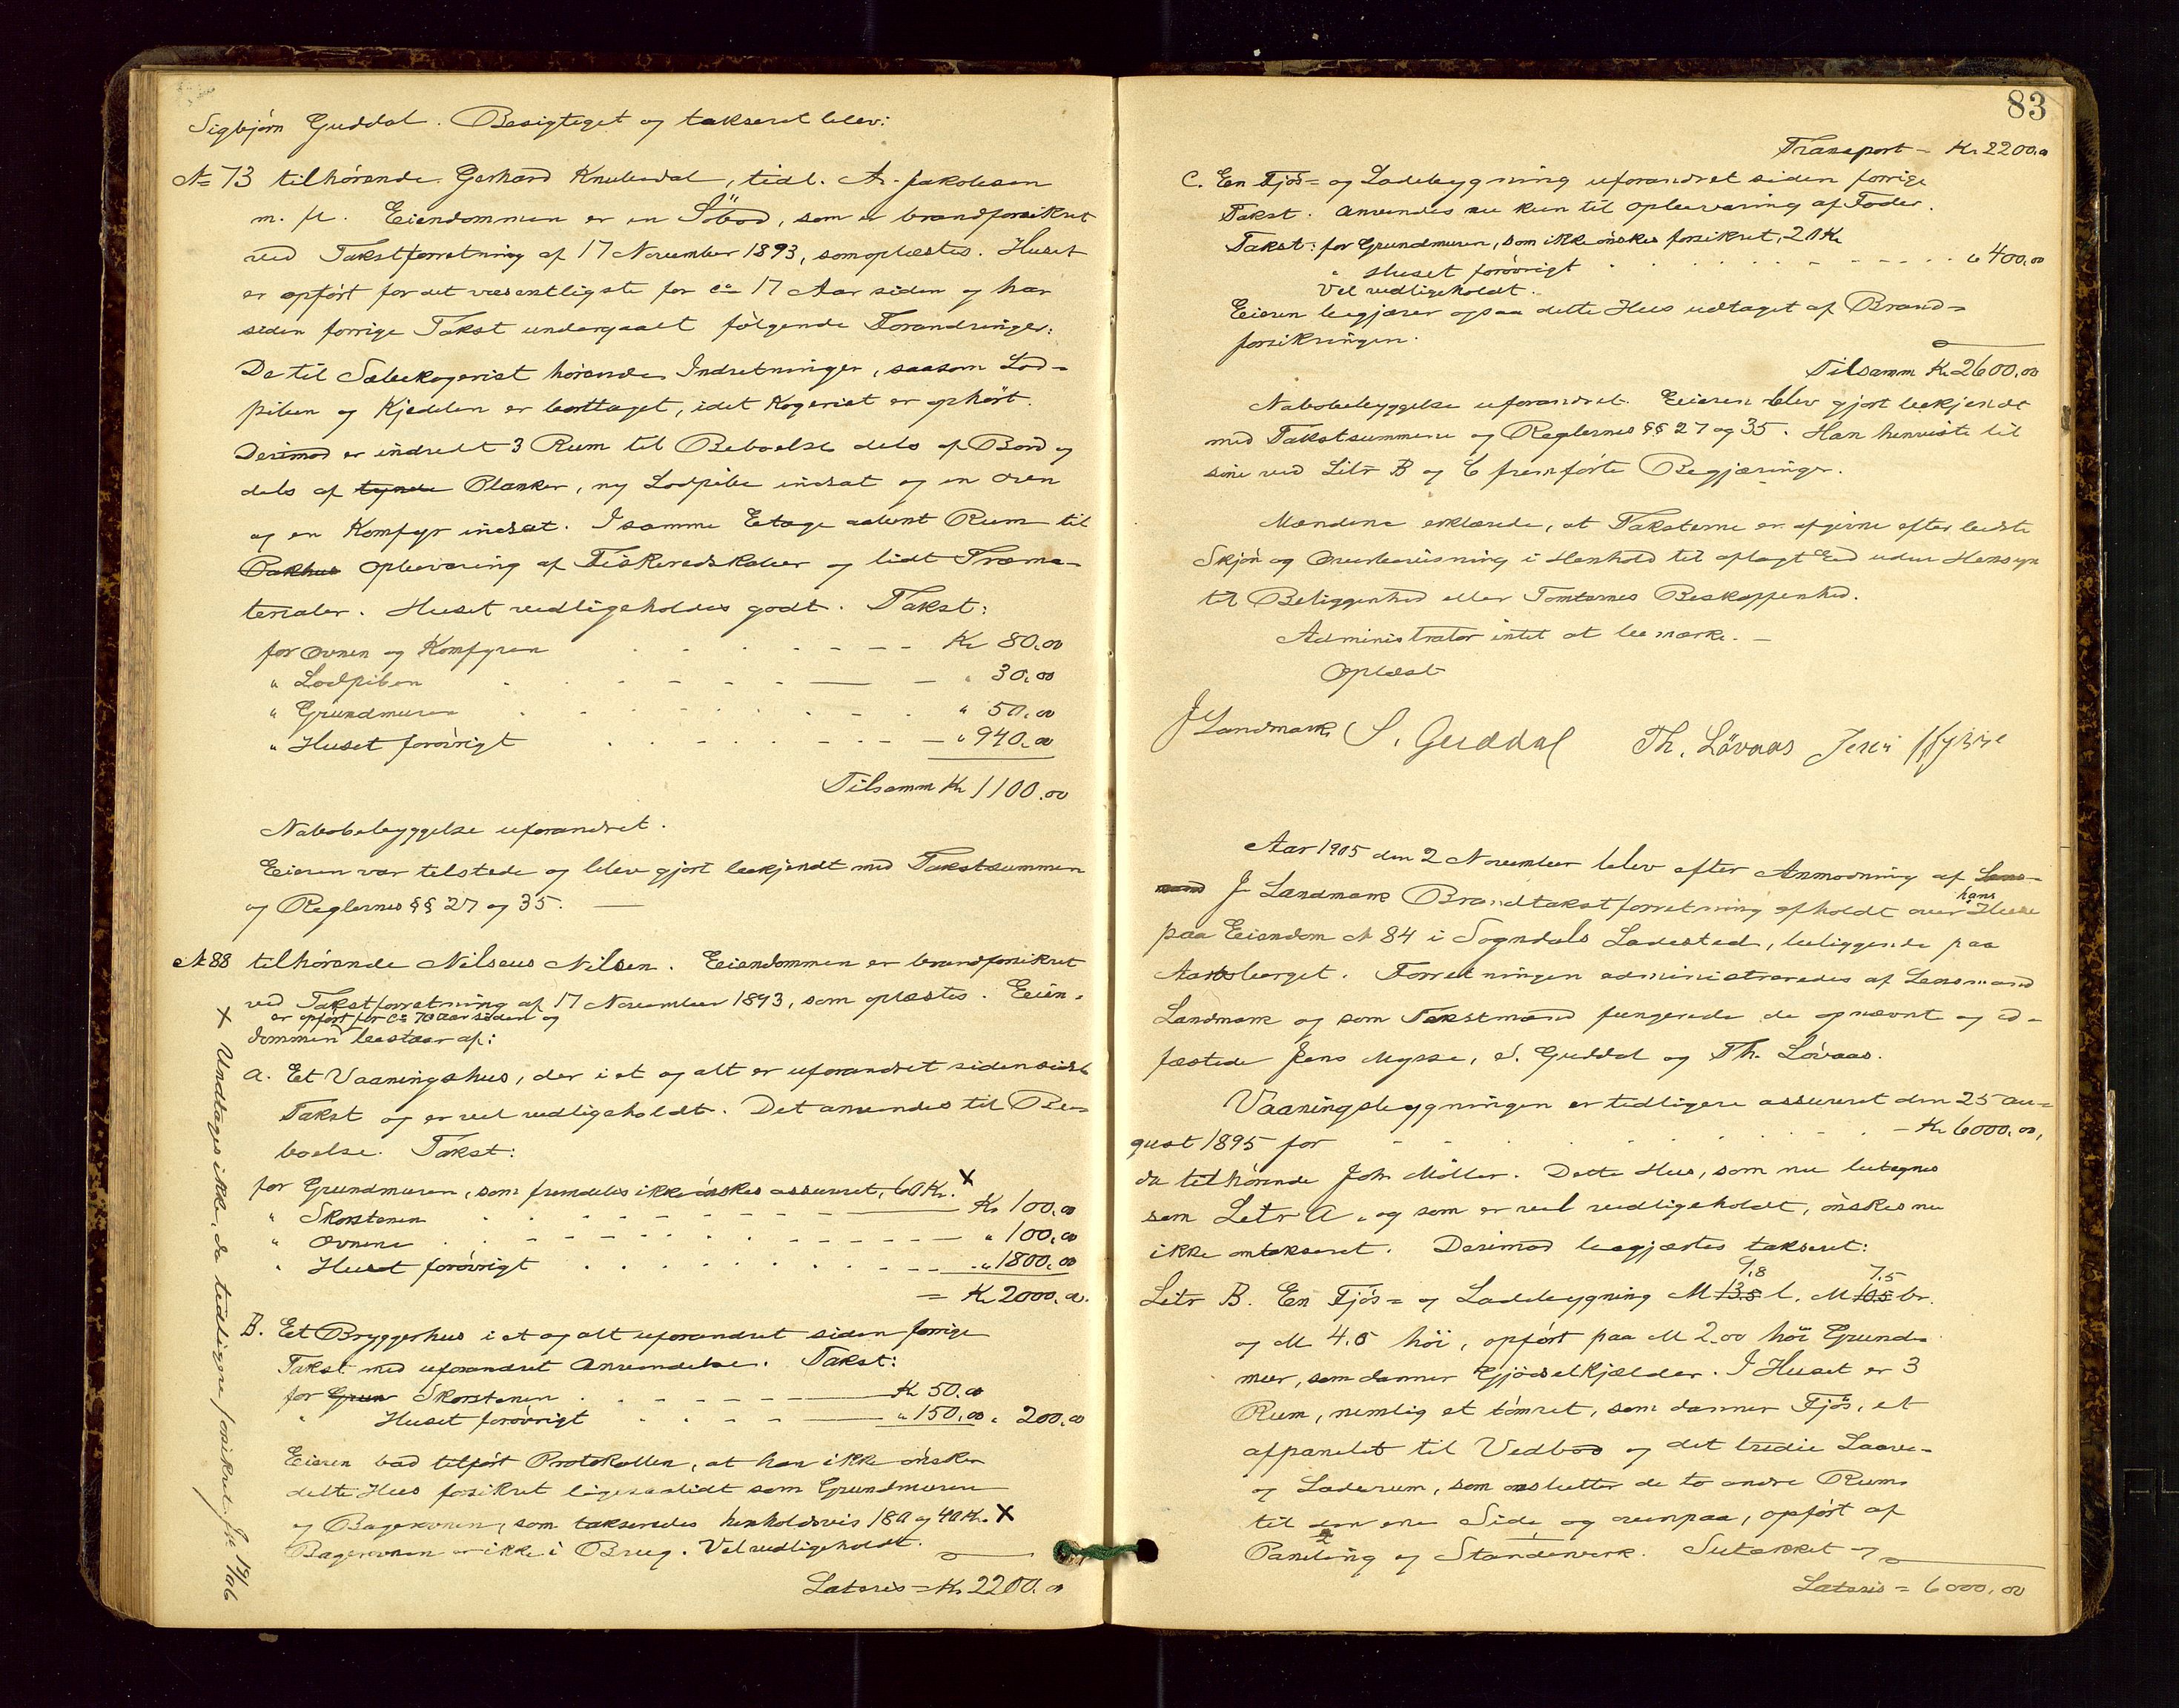 Sigbjørn Guddal. Besigtiget og takseret blev:
№ 73 tilhørende Gerhard Knubedal, tidl. A. Jakobsen
m. fl. Eiendommen er en Søbod, som er brandforsikret
ved Takstforretning af 17 November 1893, som oplæstes. Huset
er opført for det væsentligste for ca 17 Aar siden og har
siden forrige Takst undergaaet følgende Forandringer:
De til Sæbekogeriet hørende Indretninger, saasom Lod-
piben og Kjedelen er borttaget, idet Kogeriet er ophørt.
Derimod er indredt 3 Rum til Beboelse dels af Bord og
dels af tynde Planker, ny Lodpibe indsat og en Oven
og en Komfyr indsat. I samme Etage aabent Rum til
Pakhus Opbevaring af Fiskeredskaber og lidt Træma-
terialer. Huset vedligeholdes godt. Takst:
for Ovnen og Komfyren Kr 80,00
" Lodpiben " 30,00
" Grundmuren " 50,00
" Huset forøvrigt " 940,00
Tilsamm Kr 1100,00
Nabobebyggelse uforandret.
Eieren var tilstede og blev gjort bekjendt med Takstsummen
og Reglernes §§ 27 og 35.
№ 88 tilhørende Nilseus Nilsen. Eiendommen er brandforsikret
ved Takstforretning af 17 November 1893, som oplæstes. Eien-
er opført for ca 70 aar siden og
dommen bestaar af:
a. Et Vaaningshus, der i et og alt er uforandret siden sidste
Takst og er vel vedligeholdt. Det anvendes til Be-
boelse. Takst:
for Grundmuren, som fremdeles ikke ønskes assureret, 60 Kr. X
" Skorstenen Kr 100,00
" Ovnene " 100,00
" Huset forøvrigt " 1800,00
= Kr 2000,00.
B. Et Bryggerhus i et og alt uforandret siden forrige
Takst med uforandret Anvendelse. Takst:
for Grun Skorstenen Kr 50,00
" Huset forøvrigt " 150,00 " 200,00
Eieren bad tilført Protokollen, at han ikke ønsker
dette Hus forsikret ligesaalidt som Grundmuren
og Bagerovnen, som takseredes henholdsvis 180 og 40 Kr. X
Bagerovnen er ikke i Brug. Vel vedligeholdt.
Lateris = Kr 2200,00
X Undtages ikke, da tidligere forsikret.
83
Transport – Kr 2200,00
C. Een Fjøs- og Ladebygning uforandret siden forrige
Takst. Anvendes nu kun til Opbevaring af Foder.
Takst: for Grundmuren, som ikke ønskes forsikret, 20 Kr
" Huset forøvrigt " 400,00
Vel vedligeholdt.
Eieren begjærer ogsaa dette Hus udtaget af Brand-
forsikringen.
Tilsamm Kr 2600,00
Nabobebyggelse uforandret. Eieren blev gjort bekjendt
med Takstsummene og Reglernes §§ 27 og 35. Han henviste til
sine ved Litr B og C fremførte Begjæringer.
Mændene erklærede, at Taksterne er afgivne efter bedste
Skjøn og Overbevisning i Henhold til aflagt Eed uden Hensyn
til Beliggenhed eller Tomternes Beskaffenhed.
Administrator intet at bemærke. –
Oplæst
J Landmark S. Guddal Th. Lövaas Jens
Aar 1905 den 2 November blev efter Anmodning af Lens-
mand J Landmark Brandtakstforretning afholdt over hans Huse
paa Eiendom № 84 i Sogndals Ladested, beliggende paa
Aarosberget. Forretningen administreredes af Lensmand
Landmark og som Takstmænd fungerede de opnævnte og ed-
fæstede Jens Mysse, S. Guddal og Th. Løvaas.
Vaaningsbygningen er tidligere assureret den 25 au-
gust 1895 for – Kr 6000,00,
da tilhørende Joh Møller. Dette Hus, som nu betegnes
som Letr A, og som er vel vedligeholdt, ønskes nu
ikke omtakseret. Derimod begjærtes takseret:
7,8 7,5
Letr B. En Fjøs- og Ladebygning M 13,5 l. M 10,5 br.
og M 4,5 høi, opført paa M 2,00 høi Grund-
mur, som danner Gjødselkjælder. I Huset er 3
Rum, nemlig et tømret, som danner Fjøs, et
afpanelet til Vedbod og det tredie Laave-
og Laderum, som omslutter de to andre Rum
til den ene Side og ovenpaa, opført af
Paneling og Standerverk. Sutækket og
Lateris = 6000,00